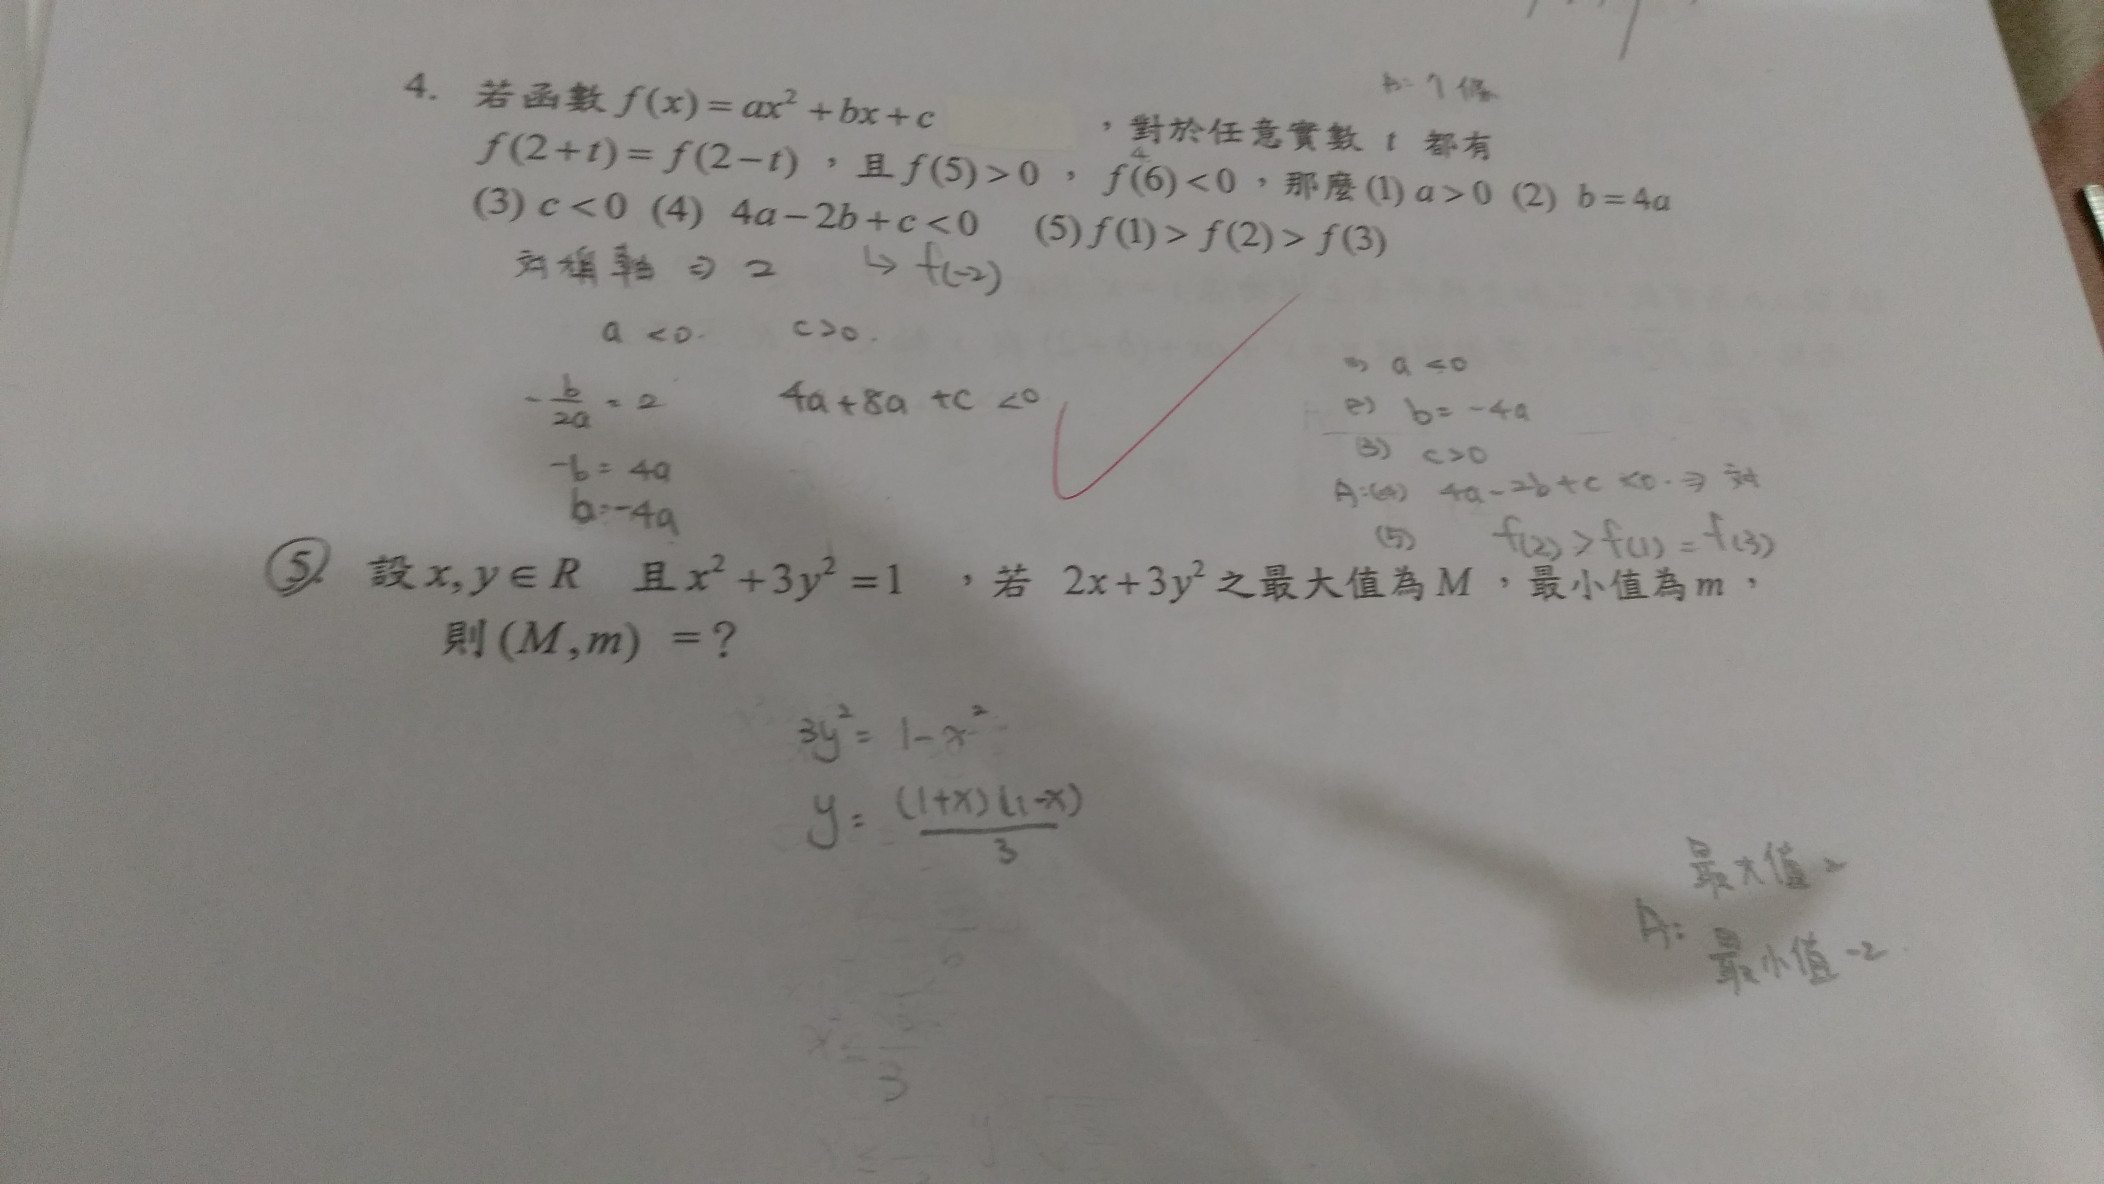 A: 7 條
4. 若函數 f(x)=ax²+bx+c ，對於任意實數 t 都有
f(2+t)=f(2-t)，且 f(5)>0，f(6)<0，那麼(1) a>0 (2) b=4a
4
(3) c<0 (4) 4a-2b+c<0 (5) f(1)>f(2)>f(3)
對稱軸 ⇒ 2 ↳ f(-2)
a<0. c>0.
-b/2a = 2 4a+8a+c<0
-b=4a
b=-4a
1) a<0
2) b=-4a
(3) c>0
A:(4) 4a-2b+c<0.⇒對
(5) f(2)>f(1)=f(3)
5. 設 x, y∈R 且 x²+3y²=1 ，若 2x+3y² 之最大值為 M，最小值為 m，
則(M,m) =?
3y²=1-x²
y= (1+x)(1-x)/3
最大值 2
A:
最小值 -2